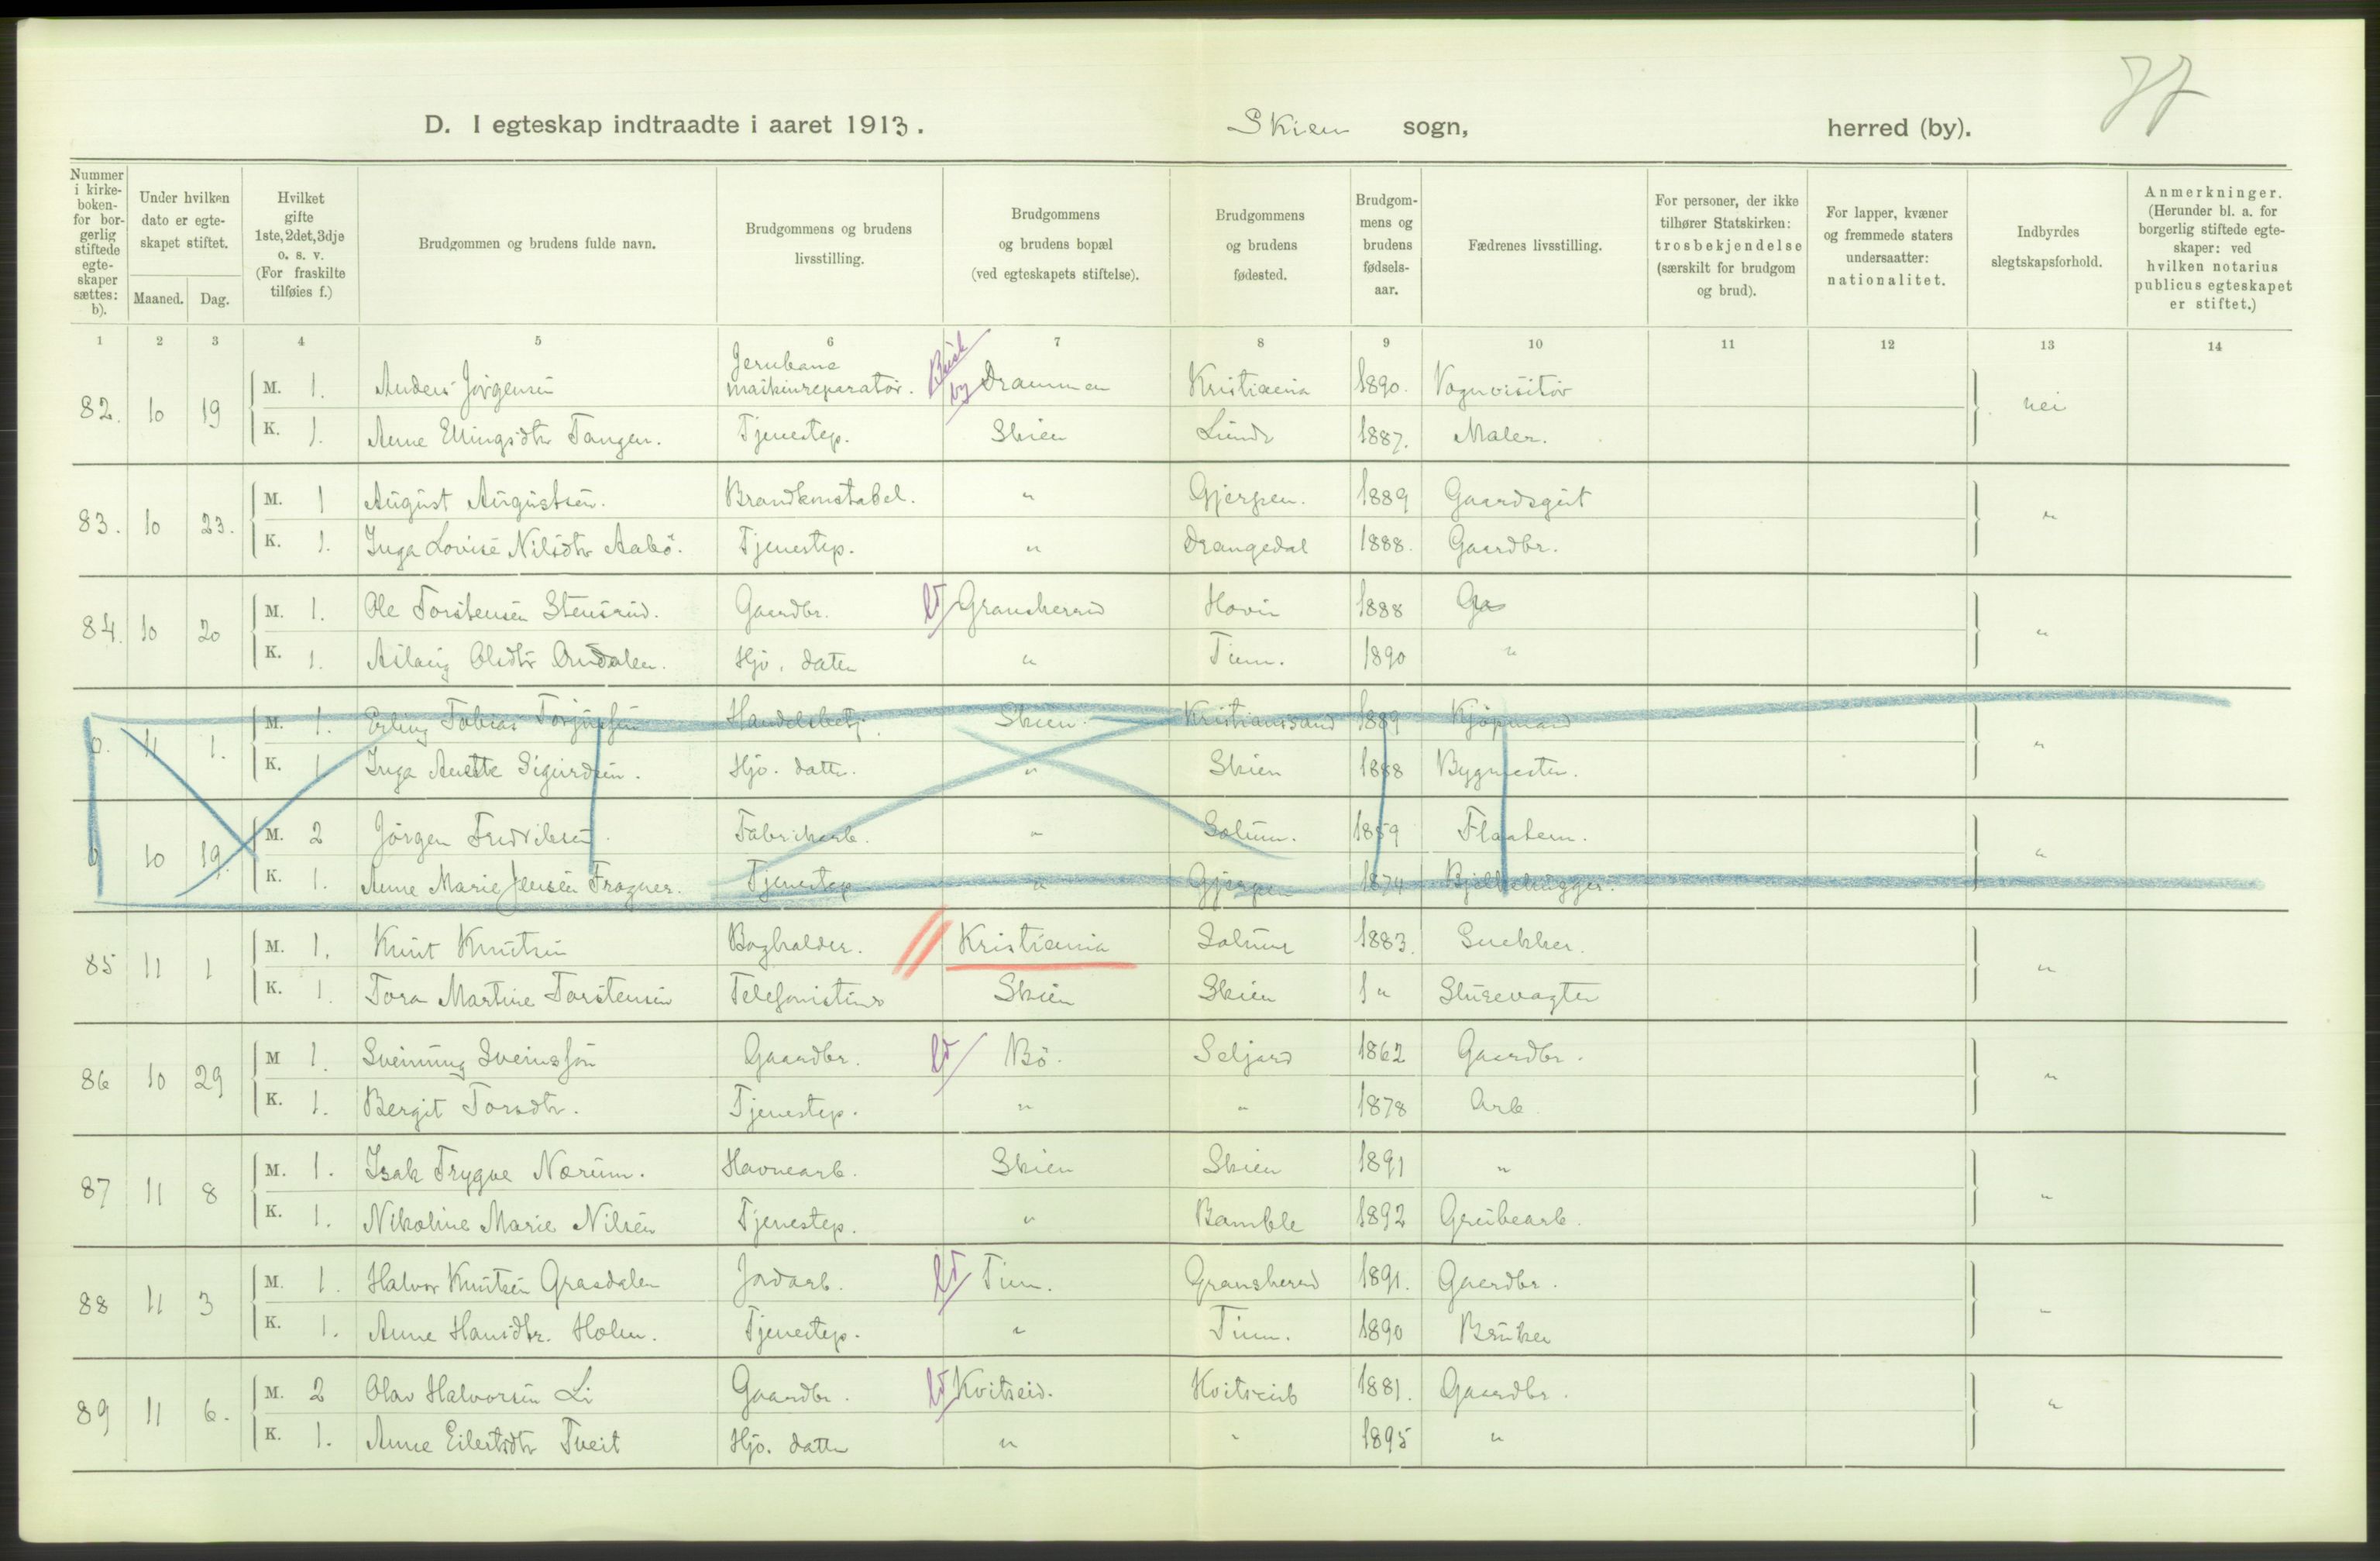 77
D. I egteskap indtraadte i aaret 1913. Skien sogn, herred (by).
Nummer i kirke-boken- for bor-gerlig stiftede egte-skaper sættes: b).
Under hvilken dato er egte-skapet stiftet.
Maaned. Dag.
Hvilket gifte 1ste, 2det, 3dje o. s. v. (For fraskilte tilføies f.)
Brudgommen og brudens fulde navn.
Brudgommens og brudens livsstilling.
Brudgommens og brudens bopæl (ved egteskapets stiftelse).
Brudgommens og brudens fødested.
Brudgom-mens og brudens fødsels-aar.
Fædrenes livsstilling.
For personer, der ikke tilhører Statskirken: trosbekjendelse (særskilt for brudgom og brud).
For lapper, kvæner og fremmede staters undersaatter: nationalitet.
Indbyrdes slegtskapsforhold.
Anmerkninger. (Herunder bl. a. for borgerlig stiftede egte-skaper: ved hvilken notarius publicus egteskapet er stiftet.)
1 2 3 4 5 6 7 8 9 10 11 12 13 14
82. 10 19 M. 1. Anders Jørgensen Jernbane maskinreparatør. Busk by Drammen Kristiania 1890. Vognvisitør nei
K. 1. Anne Ellingsdtr Tangen. Tjenestep. Skien Lunde 1887. Maler.
83. 10 23. M. 1 August Augustsen. Brandkonstabel. " Gjerpen. 1889 Gaardsgut "
K. 1. Inga Lovise Nilsdtr Aabö. Tjenestep. " Drangedal 1888. Gaardbr.
84. 10 20 M. 1. Ole Torstensen Stensrud. Gaardbr. Gransherred Hovin 1888 Ga "
K. 1. Aslaug Olsdtr Ørudalen. Hjv. datter " Tinn. 1890 "
11 1. M. 1. Erling Tobias Torjussen Handelsbetj. Skien. Kristianssand 1889 Kjøpmand "
K. 1 Inga Anette Sigurdsen. Hjv. datter. " Skien 1888 Bygmester.
10 19. M. 2 Jörgen Fredriksen. Fabrikarb. " Solum. 1859 Flaatem. "
K. 1. Anne Marie Jensen Frogner. Tjenestep. " Gjerpen 1874 Bjelkehugger.
85 11 1 M. 1. Knut Knutsen Bogholder. Kristiania Solum 1883. Snekker. "
K. 1. Tora Martine Torstensen Telefonistinde Skien Skien 1 " Slusevagter
86 10 29 M 1. Sveinung Sveinsson Gaardbr. Bö. Seljord 1862 Gaardbr. "
K. 1. Bergit Torsdtr. Tjenestep. " " 1878 Arb.
87 11 8 M. 1. Isak Trygve Nærum. Havnearb. Skien Skien 1891 " "
K. 1. Nikoline Marie Nilsen Tjenestep. " Bamble 1892 Grubearb.
88 11 3 M. 1. Halvor Knutsen Grasdalen Jordarb. Tinn. Gransherred 1891. Gaardbr. "
K. 1. Anne Hansdtr. Holen. Tjenestep. " Tinn. 1890 Bruker
89 11 6. M. 2 Olav Halvorsen Li Gaardbr. Kvitseid. Kvitseid 1881. Gaardbr. "
K. 1. Anne Eilertsdtr Tveit Hjv. datter " " 1895 "